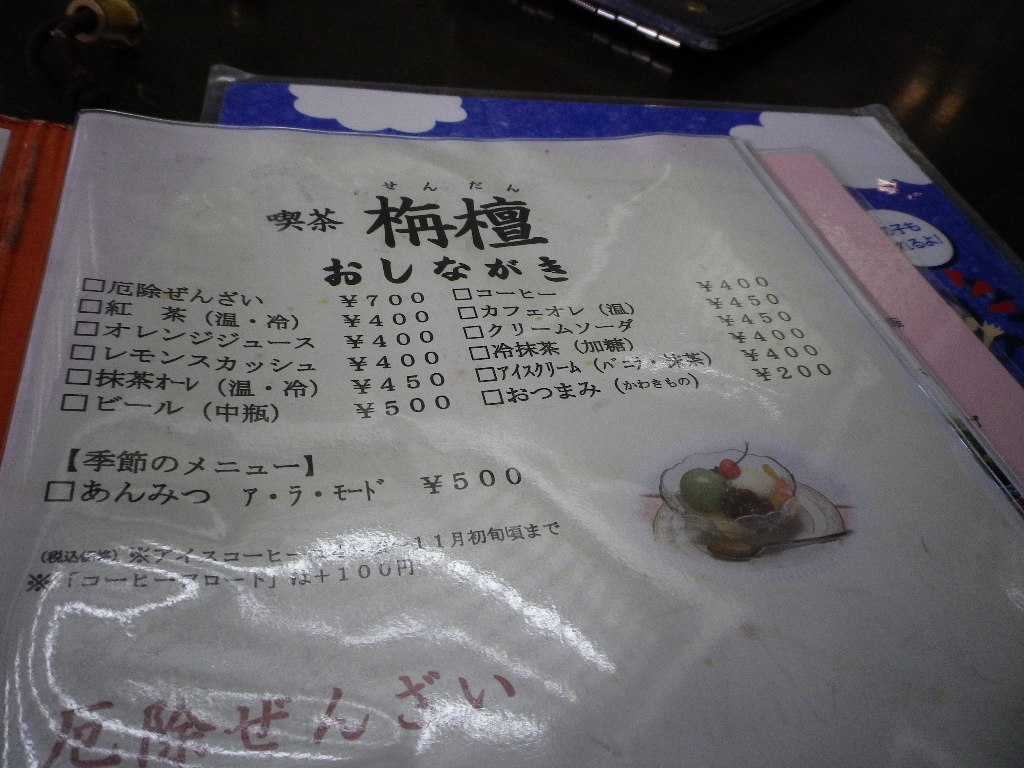 せんだん
喫茶 栴檀
おしながき
□厄除ぜんざい ￥７００
□紅 茶（温・冷） ￥４００
□オレンジジュース ￥４００
□レモンスカッシュ ￥４００
□抹茶オーレ（温・冷） ￥４５０
□ビール（中瓶） ￥５００
□コーヒー ￥４００
□カフェオレ（温） ￥４５０
□クリームソーダ ￥４５０
□冷抹茶（加糖） ￥４００
□アイスクリーム（バニラ・抹茶） ￥４００
□おつまみ（かわきもの） ￥２００
【季節のメニュー】
□あんみつ ア・ラ・モード ￥５００
※アイスコーヒー １１月初旬頃まで
※「コーヒーフロート」は＋１００円
厄除ぜんざい